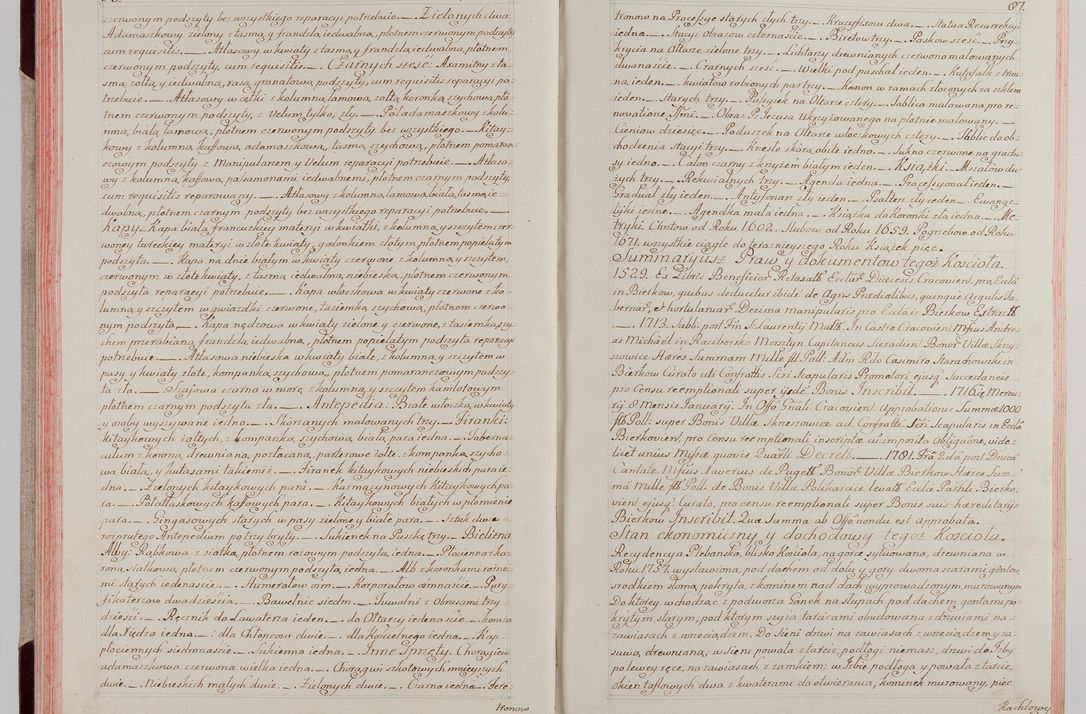 czerwonym podszyty bez wszystkiego reparacyi potrzebuie. _ . Zielonych dwa:
Adamaszkowy zielony z tasmą y frandzlą iedwalną, płotnem czerwonym podszyty
cum requisitis. _ . Atłasowy w kwiaty z tasmą, y frandzlą iedwalną, płotnem
czerwonym podszyty, cum requisitis. _ . Czarnych szesc: Axamitny z ta-
smą żołtą y iedwabną, rasą granatową podszyty, cum requisitis reparacyi po-
trzebuie. _ . Atłasowy w cętki z kolumną lamową, żołtą koronką szychową, pło-
tnem czerwonym podszyty, z Velum tylko, zły. _ . Poladamaszkowy z kolu-
mną, białą lamową, płotnem czerwonym podszyty bez wszystkiego. _ . Kitay-
kowy z kolumną kaffową, adamaszkową, tasmą szychową, płotnem pomaran-
czowym podszyty z Manipularzem y Velum reparacyi potrzebuie. _ . Atłaso-
wy z kolumną kaffową, pasamonami iedwalnemi, płotnem czarnym podszyty,
cum requisitis reparowany. _ . Atłasowy z kolumną, lamową, białą, tasmą ie-
dwalną, płotnem czarnym podszyty bez wszystkiego reparacyi potrzebuie. _
Kapy: Kapa biała francuzkiey materyi w kwiatki, z kolumną, y szczytem czer-
woney tureckiey materyi w złote kwiaty, galonkiem złotym, płotnem popielatym
podszyta. _ . Kapa na dnie białym w kwiaty czerwone z kolumną, y szczytem,
czerwonym w złote kwiaty, z tasmą iedwalną, niebieską, płotnem czerwonym
podszyta reparacyi potrzebuie. _ . Kapa włoczkowa w kwiaty czerwone z ko-
lumną, y szczytem w gwiazdki czerwone, tasiemką szychową, płotnem czerwo-
nym podszyta. _ . Kapa nędzowa w kwiaty zielone y czerwone, z tasiemką szy-
chem przerabianą frandzlą iedwalną, płotnem popielatym podszyta reparacyi
potrzebuie. _ . Atłasowa niebieska w kwiaty białe, z kolumną, y szczytem w
pasy y kwiaty złote, kompanką szychową, płotnem pomaranczowym podszy-
ta zła. _ . Szajowa czarna w morę z kolumną, y szczytem kamlotowym
płotnem czarnym podszyta zła. _ . Antepedia: Białe włoczką w kwiaty
y osoby wyszywane iedno. _ . Skorzanych malowanych trzy. _ . Firanki:
Kitaykowych żołtych, z kompanką, szychową, białą para iedna. _ . Taberna-
culum z koroną drewnianą, pozłacaną, parterowe żołte z kompanką szycho-
wą białą, y kutasami takiemiż. _ . Firanek kitaykowych niebieskich para ie-
dna. _ . Zielonych kitaykowych para. _ . Karmazynowych kitaykowych pa-
ra. _ . Połatłaskowych kaffowych para. _ . Kitaykowych białych w płomienie
para. _ . Gingasowych starych w pasy zielone y białe para. _ . Sztuk dwie z
rozprutego Antepedium po trzy bryty. _ . Sukienek na Puszkę trzy. _ . Bielizna
Alby: Rąbkowa z siatką, płotnem rożowym podszytą iedna. _ . Płocienna z ko-
roną, siatkową, płotnem czerwonym podszytą, iedna. _ . Alb z koronkami rożne-
mi starych iedenascie. _ . Humerałow osm. _ . Korporałow osmnascie. _ . Pury-
fikaterzow dwadziescia. _ . Bawełnic siedm. _ . Tuwalni z Obrusami trzy-
dziesci. _ . Ręcznik do Lawaterza ieden. _ . do Ołtarzy iedenascie. _ . Komża
dla Xiędza iedna. _ . dla Chłopcow dwie. _ . dla Kościelnego iedna. _ . Kap
płociennych siedmnascie. _ . Sukienna iedna. _ . Inne Sprzęty. Chorągiew
adamaszkowa czerwona wielka iedna. _ . Chorągwi szkołowych mnieyszych
dwie. _ . Niebieskich małych dwie. _ . Zielonych dwie. _ . Czarna iedna. _ . Fere-
tronow
87.
tronow na Processye starych złych trzy. _ . Krucyfixow dwa. _ . Statua Resurekcyi
iedna. _ . Stacyi obrazow czternascie. _ . Biretow trzy. _ . Paskow szesc. _ . Przy-
krycia na Ołtarze zielone trzy. _ . Lichtarzy drewnianych czerwono malowanych
dwanascie. _ . Czarnych szesc. _ . Wielki pod paschał ieden. _ . Katafalk z trun-
ną ieden. _ . Kwiatow robionych par trzy. _ . Kanon w ramach złoconych za szkłem
ieden. _ . Starych trzy. _ . Pulpyek na Ołtarze cztery. _ . Tablica malowana pro re-
novatione Ssmi. _ . Obraz P. Jezusa Ukrzyżowanego na płotnie malowany. _
Cieniow dziesięc. _ . Poduszek na Ołtarze włoczkowych cztery. _ . Tablic do ob-
chodzenia stacyi trzy. _ . Krzesło skorą obite iedno. _ . Sukno czerwone na gradu-
sy iedno. _ . Całun czarny z krzyżem białym ieden. _ . Książki. Mszałow du-
żych trzy. _ . Rekwialnych trzy. _ . Agenda iedna. _ . Processyonał ieden. _
Graduał zły ieden. _ . Antyfonarz zły ieden. _ . Psałterz zły ieden. _ . Ewange-
liyki iedne. _ . Agendka mała iedna. _ . Książka do Koronki zła iedna. _ . Me-
tryki Chrztow od Roku 1602. Slubow od Roku 1659. Pogrzebow od Roku
1671. wszystkie ciągle do teraznieyszego Roku Książek pięc.
Summaryusz Praw y dokumentow tegoż Kościoła.
1529. Ex Libris Beneficior Retaxat Eccliæ Diæcesis Cracovien. pro Ecclã
in Bierkow, quibus deducitur ibidē de Agris Prædialibus, quinque Argulis Ta-
bernar, et hortulaniar Decima manipularis pro Ecclã in Bierkow Extract
_ . 1713. Sabb. post Frã S. Laurentij Matt. In Castro Cracovien. Mfcus Andre-
as Michael in Raciborsko Morsztyn Capitaneus Sieradien. Bonor Villæ Skrzy-
szowice Hæres Summam Mille fl. Poll. Adm Rdo Casimiro Starachowski in
Bierkow Curato uti Confrattis Scri Scapularis Promotori ejusq. Succedaneis
pro Censu reemptionali super ijsdē Bonis Inscribit. _ . 1716. Mercu-
rij 8 Mensis January. In Offo Gnali Cracovien. Approbationis Summæ 1000
fl. Poll. super Bonis Villæ Skneszowice ad Confrattē Scri Scapularis in Ecclã
Bierkovien, pro Censu reemptionali inscriptæ ac imposito Obligaōne, vide-
licet unius Missæ quovis Quartli Decrett. _ . 1781. Fra Ē 2dã post Dnicã
Cantate Mfcus Xaverius de Puget Bonor Villæ Bierkow Hæres Sum-
mã Mille fl. Poll. de Bonis Villæ Polikarcice levat. Ecclã Pachli Bierko-
vien, ejusq. Curato, pro censu reemptionali super Bonis suis hæreditarijs
Bierkow Inscribit. Quæ Summa ab Offo nondū est approbata.
Stan ekonomiczny y dochodowy tegoż Kościoła.
Rezydencya Plebańska, blisko Kościoła, na gorze sytuowana, drewniana w
Roku 1737. wystawiona, pod dachem od dołu y gory dwoma szarami gontow,
srodkiem słomą pokryta, z kominem nad dach wyprowadzonym, murowanym
Do ktorey wchodząc z podworza Ganek na słupach pod dachem gontami po-
krytym starym, pod ktorym szyia tarcicami obudowana z drzwiami na
zawiasach z wrzeciądzem. Do Sieni drzwi na zawiasach z wrzeciądzem y za-
suwą, drewnianą; w sieni powała z tarcic, podłogi niemasz, drzwi do Izby
po lewey ręce, na zawiasach z zamkiem; w Izbie podłoga y powała z tarcic,
okien taflowych dwa z kwaterami do otwierania, kominek murowany, piec
Kachlowy